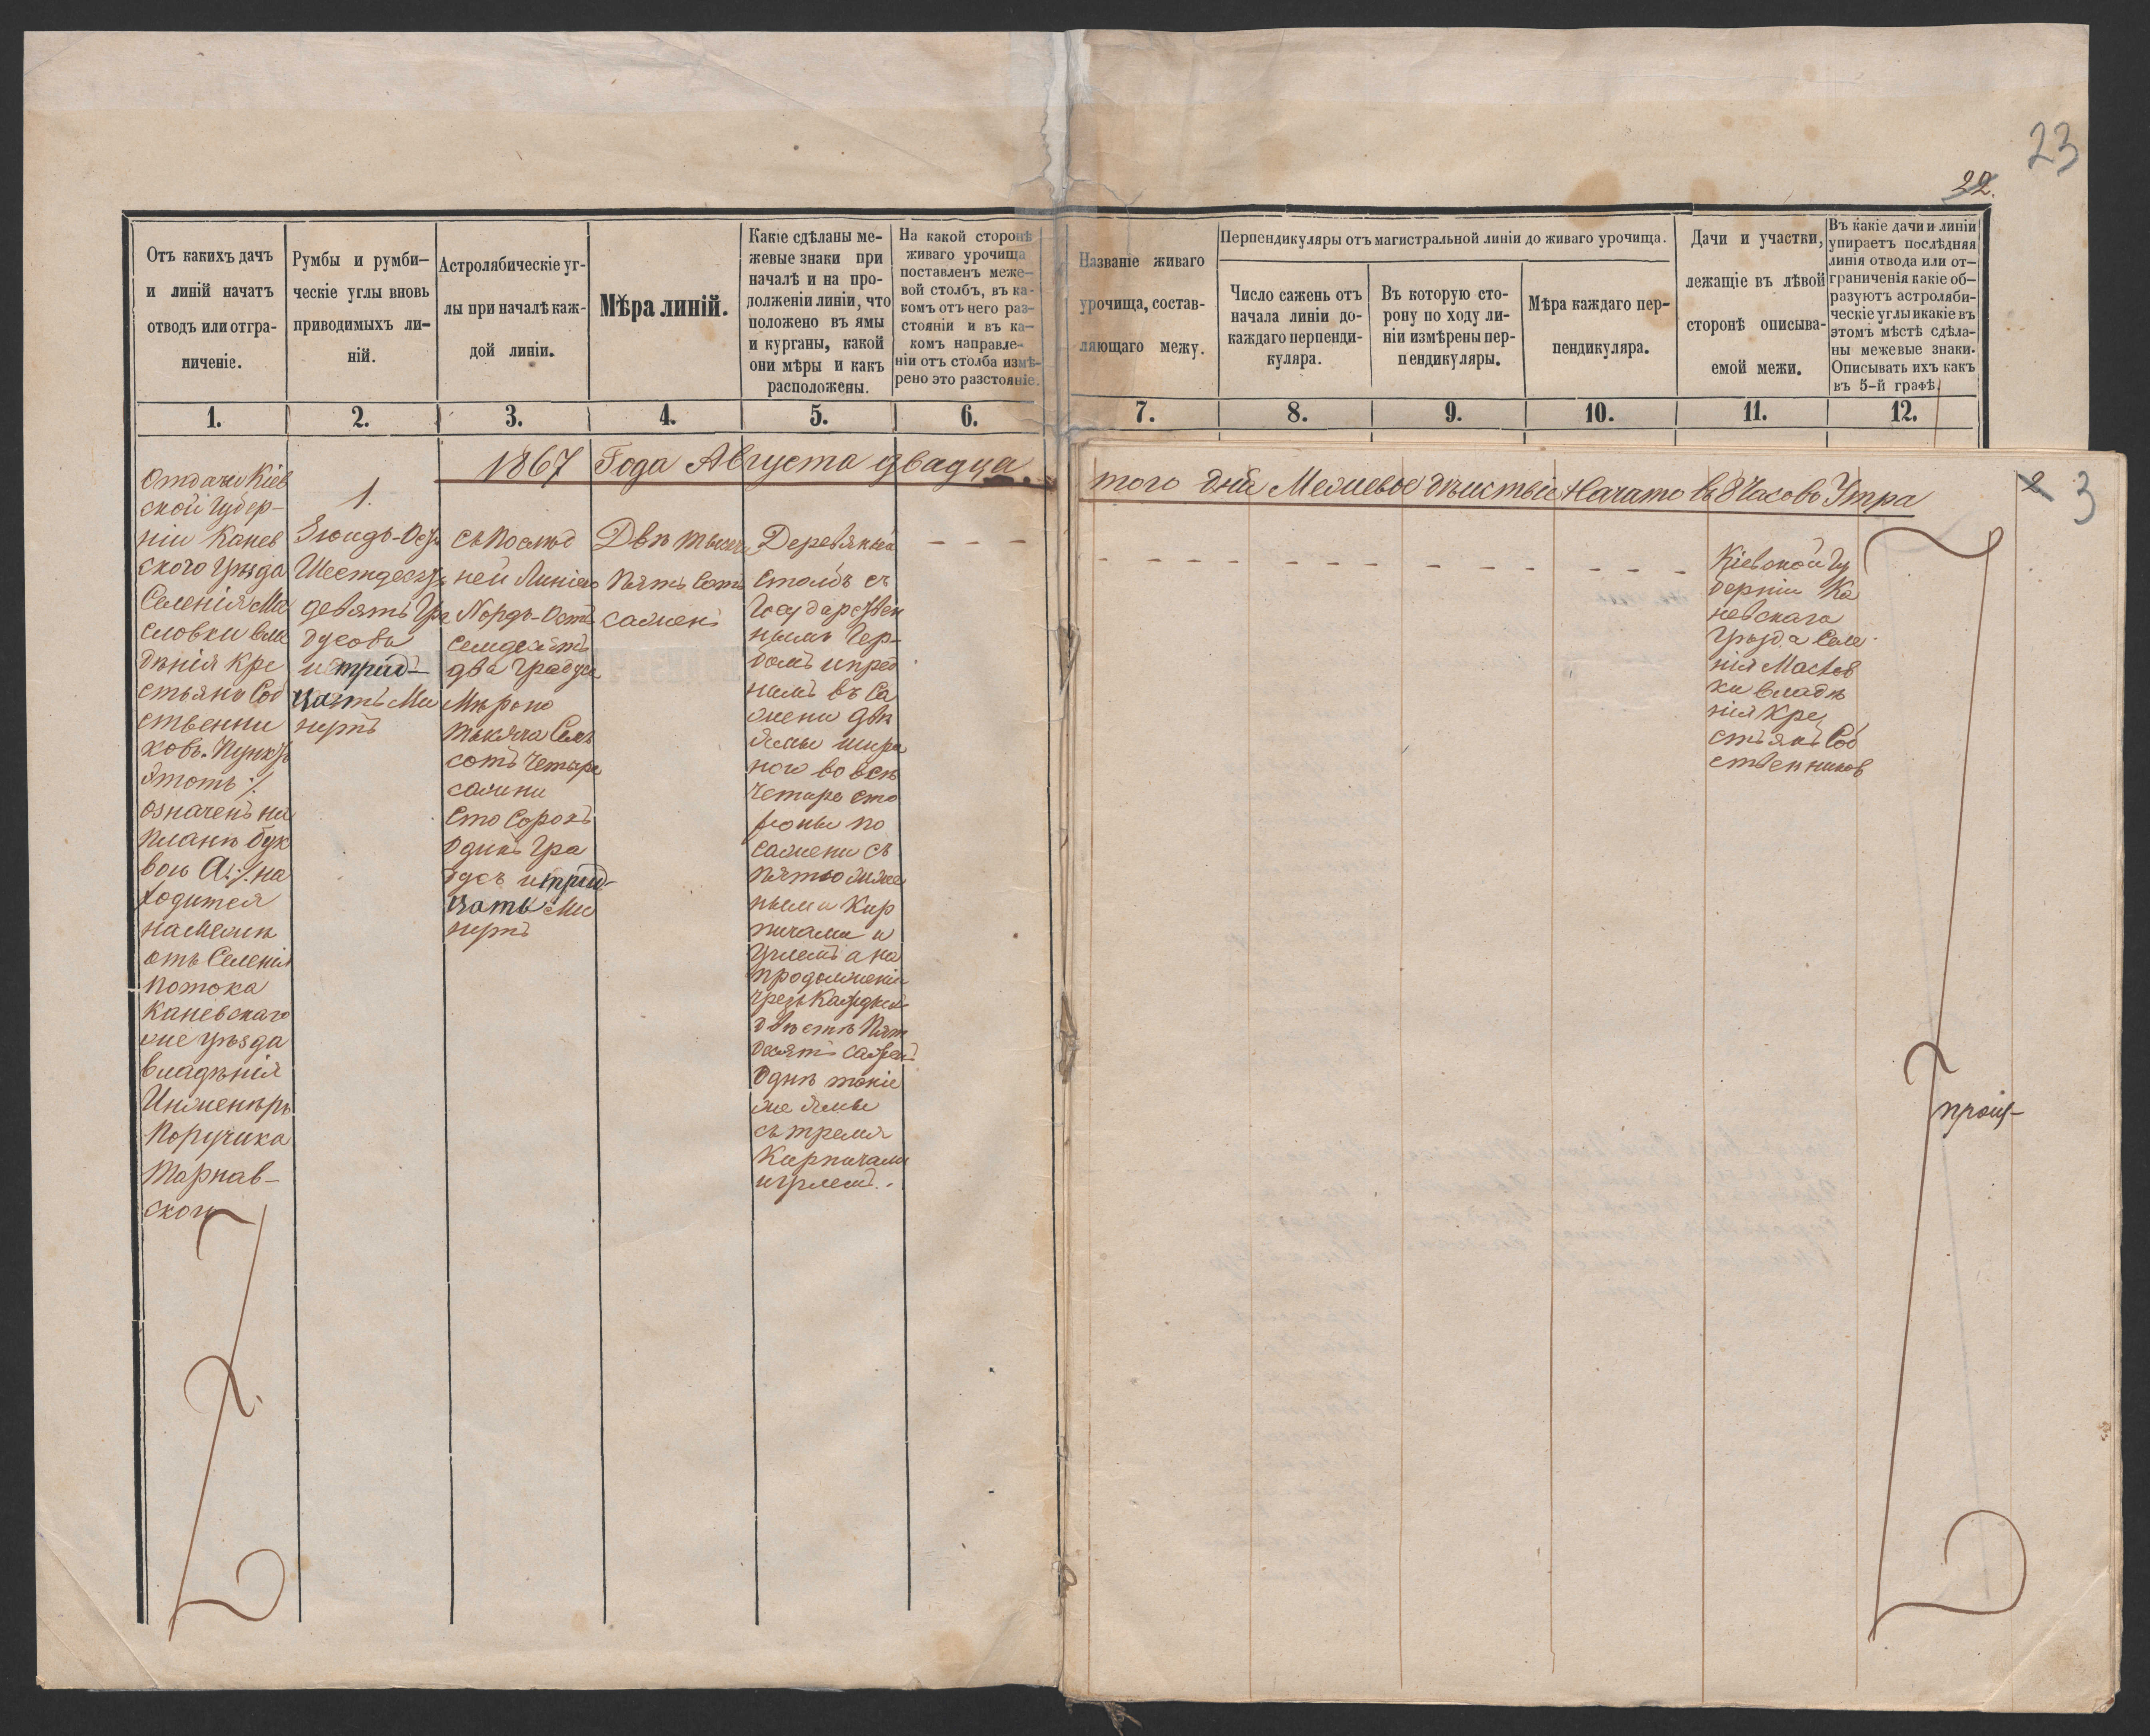 23
22.
Отъ какихъ дачъ
и линій начатъ
отводъ или отгра-
ниченіе.
Румбы и румби-
ческіе углы вновь
приводимыхъ ли-
ній.
Астролябическіе уг-
лы при началѣ каж-
дой линіи.
Мѣра линій.
Какіе сдѣланы ме-
жевые знаки при
началѣ и на про-
долженіи линіи, что
положено въ ямы
и курганы, какой
они мѣры и какъ
расположены.
На какой сторонѣ
живаго урочища
поставленъ меже-
вой столбъ, въ ка-
комъ отъ него раз-
стояніи и въ ка-
комъ направле-
ніи отъ столба измѣ-
рено это разстояніе.
Названіе живаго
урочища, состав-
ляющаго межу.
Перпендикуляры отъ магистральной линіи до живаго урочища.
Число сажень отъ
начала линіи до-
каждаго перпенди-
куляра.
Въ которую сто-
рону по ходу ли-
ніи измѣрены пер-
пендикуляры.
Мѣра каждаго пер-
пендикуляра.
Дачи и участки,
лежащіе въ лѣвой
сторонѣ описыва-
емой межи.
Въ какіе дачи и линіи
упираетъ послѣдняя
линія отвода или от-
граниченія какіе об-
разуютъ астроляби-
ческіе углы и какіе въ
этомъ мѣстѣ сдѣла-
ны межевые знаки.
Описывать ихъ какъ
въ 5-й графѣ.
1. 2. 3. 4. 5. 6. 7. 8. 9. 10. 11. 12.
1867 Года Августа двадца
того дня Межевое дѣйствіе Начато въ 8 Часовъ Утра
2 3
Отдачи Кіев
ской Губер-
ніи Канев
ского уѣзда
Селенія Ма
словки вла
дѣнія Кре
стьянъ Соб
ственни
ковъ. Пунктъ
Этотъ /:
означенъ на
Планѣ бук
вою А :/ на
ходится
на Межѣ
отъ Селенія
Потока
Каневскаго
же уѣзда
владѣнія
Инженеръ
Поручика
Тарнав-
ского
1.
Зюидъ-Остъ
Шестдесятъ
девять Гра
дусовъ
и трид-
цать Ми
нутъ
съ Послѣд
ней Линіею
Nордъ-Остъ
семдесятъ
два градуса
Мѣрою
тысяча Семь
сотъ Четыре
сажени
Сто Сорокъ
одинъ Гра
дусъ и трид-
цать Ми
нутъ
Двѣ тысячи
Пять Сотъ
сажень
Деревяный
Столбъ съ
Государствен
нымъ Гер-
бомъ и пред
нимъ въ Са
жени двѣ
Ямы шири
ною во всѣ
Четыре сто
роны по
сажени съ
пятью
Кир
пичами и
Углемъ а на
продолженіи
чрезъ Каждыя
двѣстѣ Пять
десятъ сажень
Однѣ такіе
же Ямы
съ тремя
Кирпичами
и углемъ.
Кіевской Гу
берніи Ка
невскаго
Уѣзда Селе
нія Маслов
ки владѣ
нія Кре
стьянъ Соб
ственниковъ